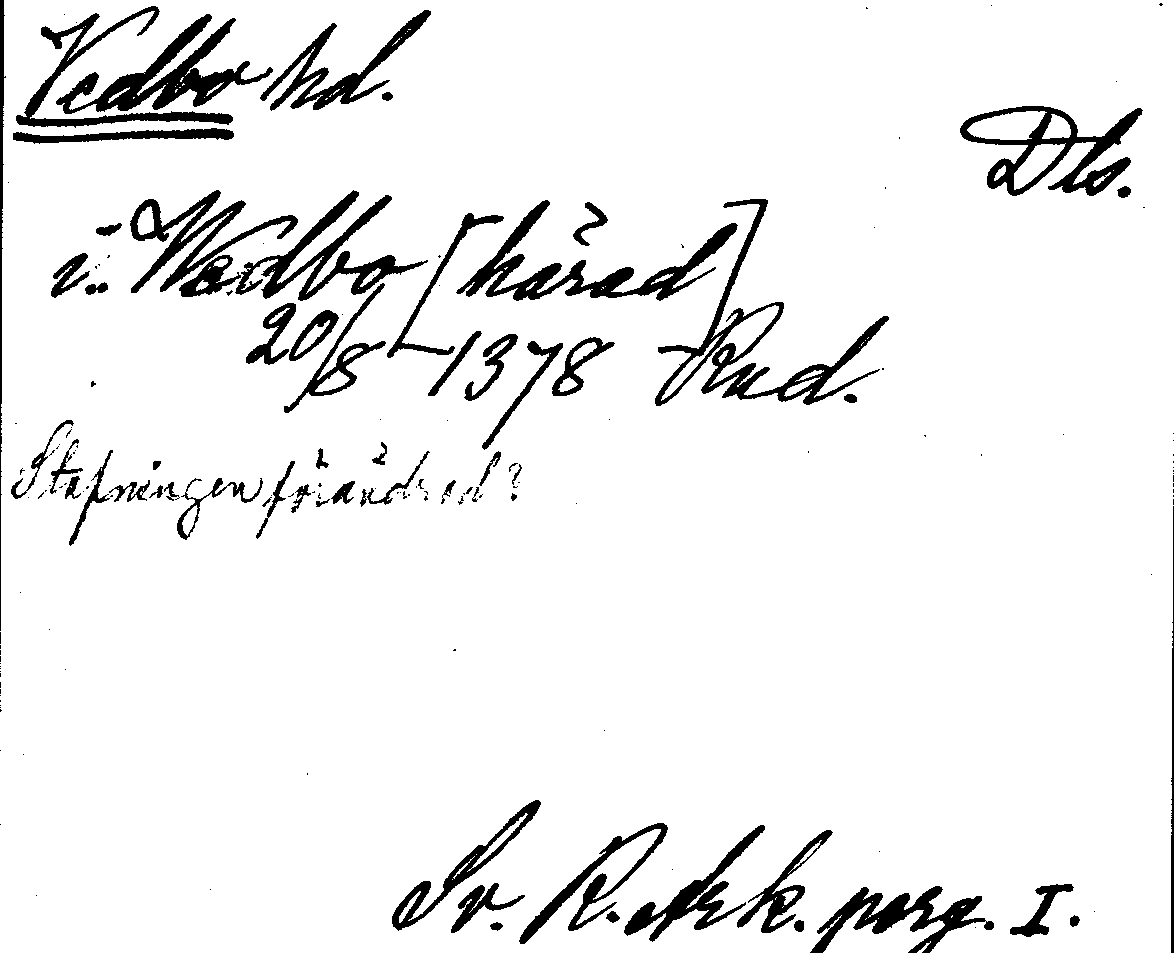 Vedbo hd.
Dls.
i. Wedbo [härad]
20/8 1378 Rud.
Stafningen förändrad?
Sv. R. Ark. perg. I.